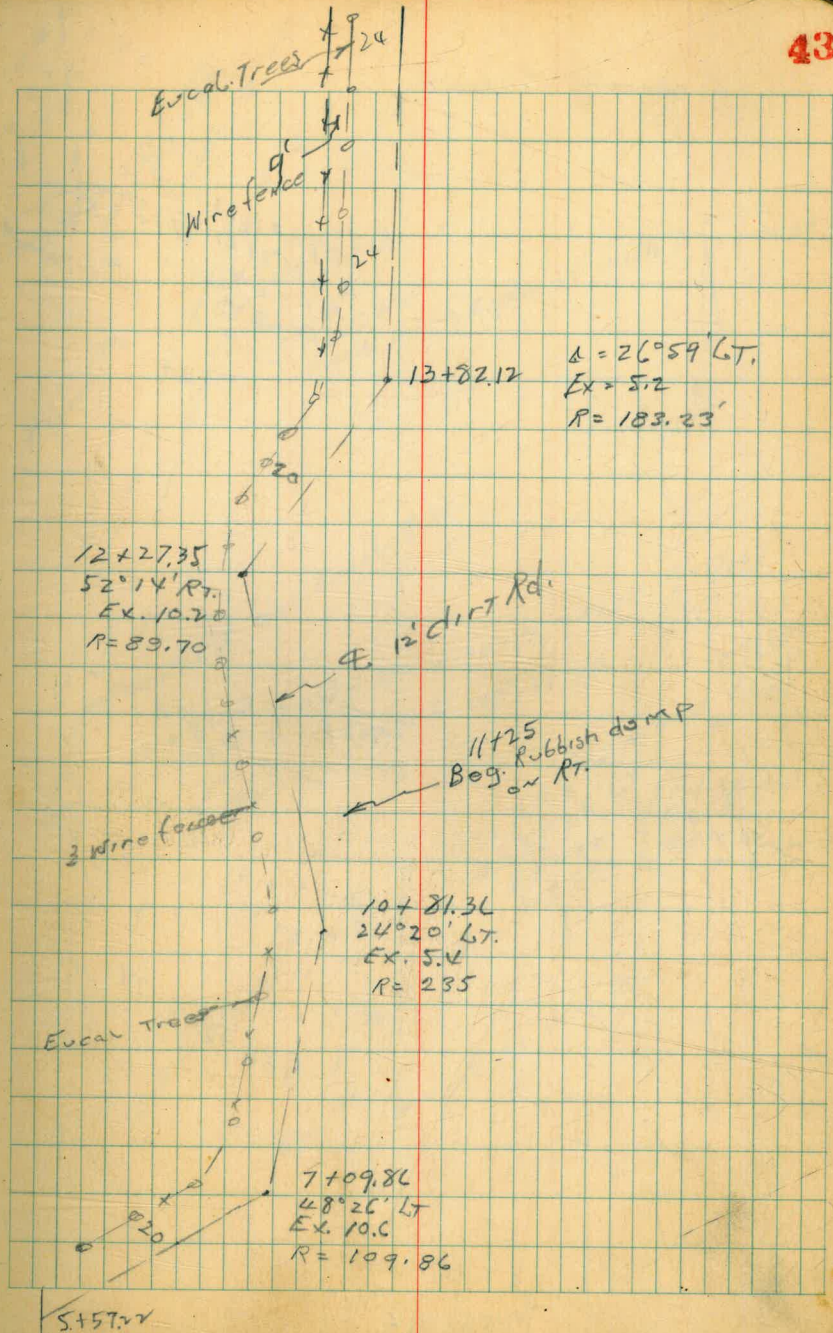 43
Eucal. Trees
24
9'
Wire fence
24
13+82.12
Δ = 26°59' LT.
Ex = 5.2
R = 183.23'
20
12+27.35
52°14' RT.
Ex. 10.20
R = 89.70
℄ 12' dirt Rd.
11+25
Beg. Rubbish dump
on RT.
3 Wire fence
10+81.36
24°20' LT.
Ex. 5.4
R = 235
Eucal Trees
7+09.86
48°26' LT
Ex. 10.6
R = 109.86
20
5+57.22